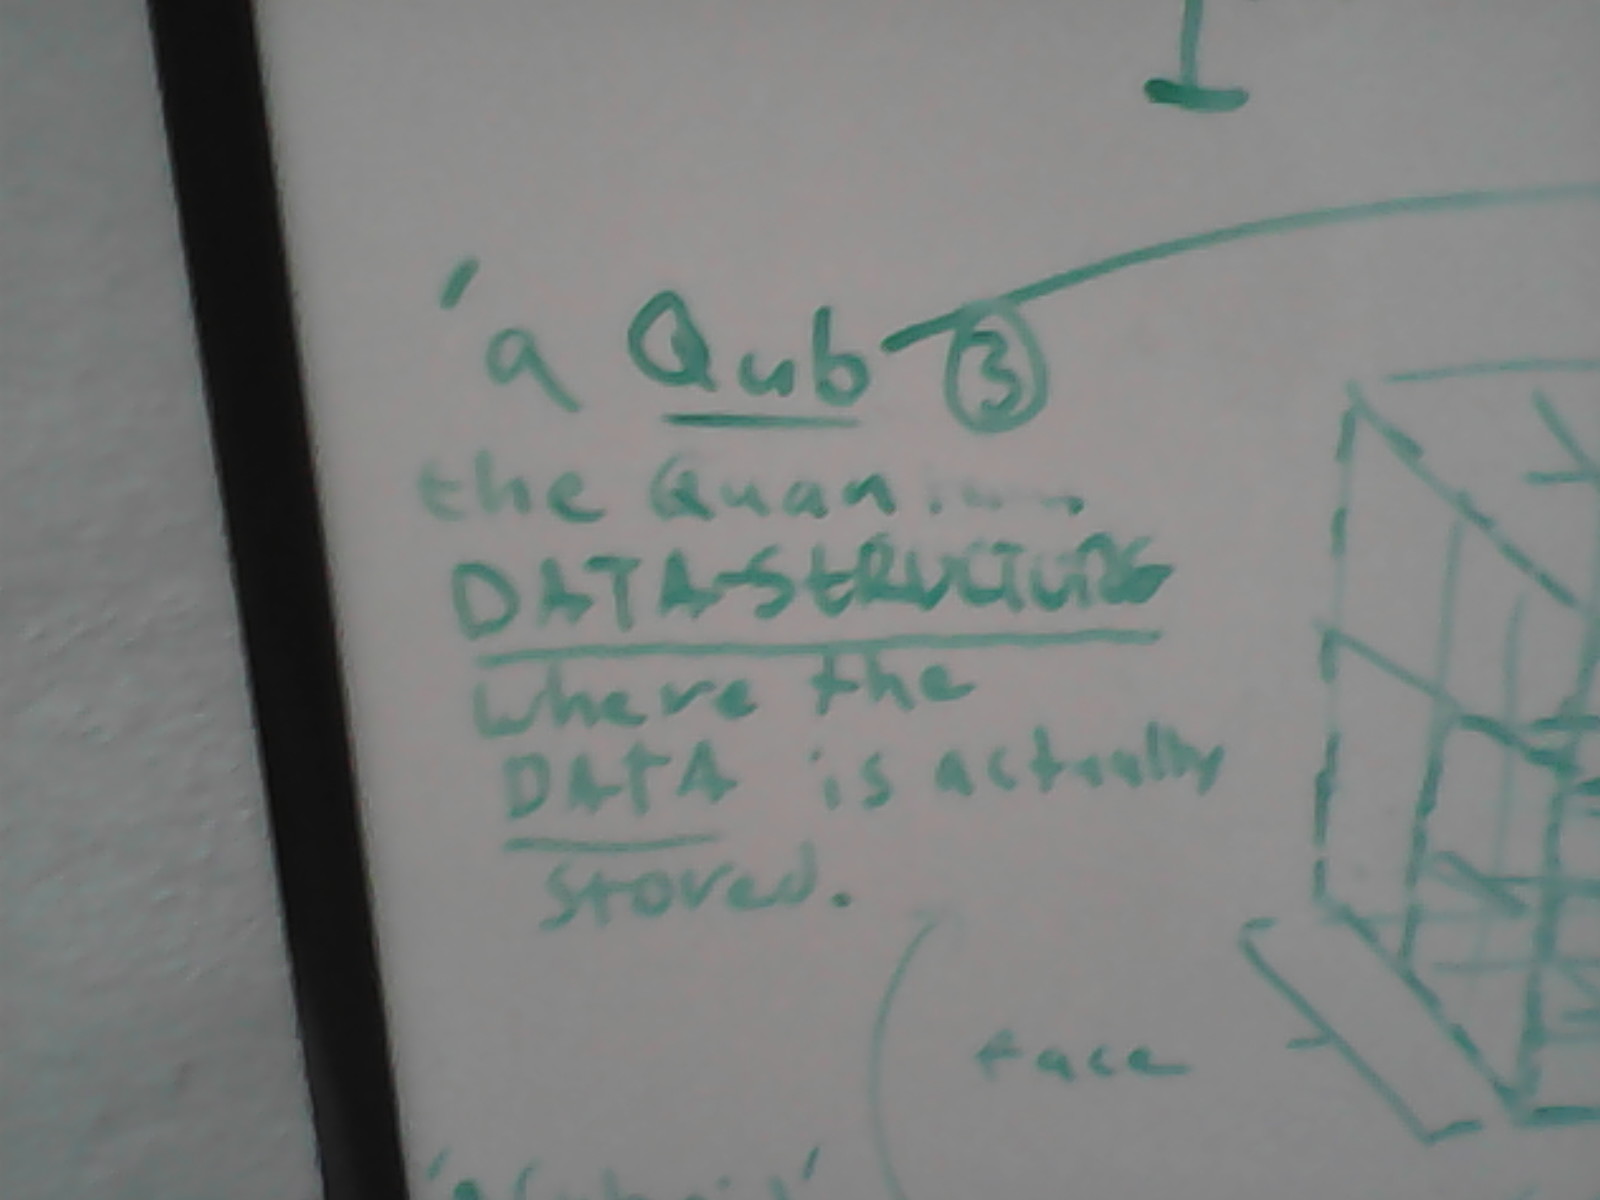 'a Qub ③
the
DATA-StRUCTURE
where the
DATA is actually
stored.
face